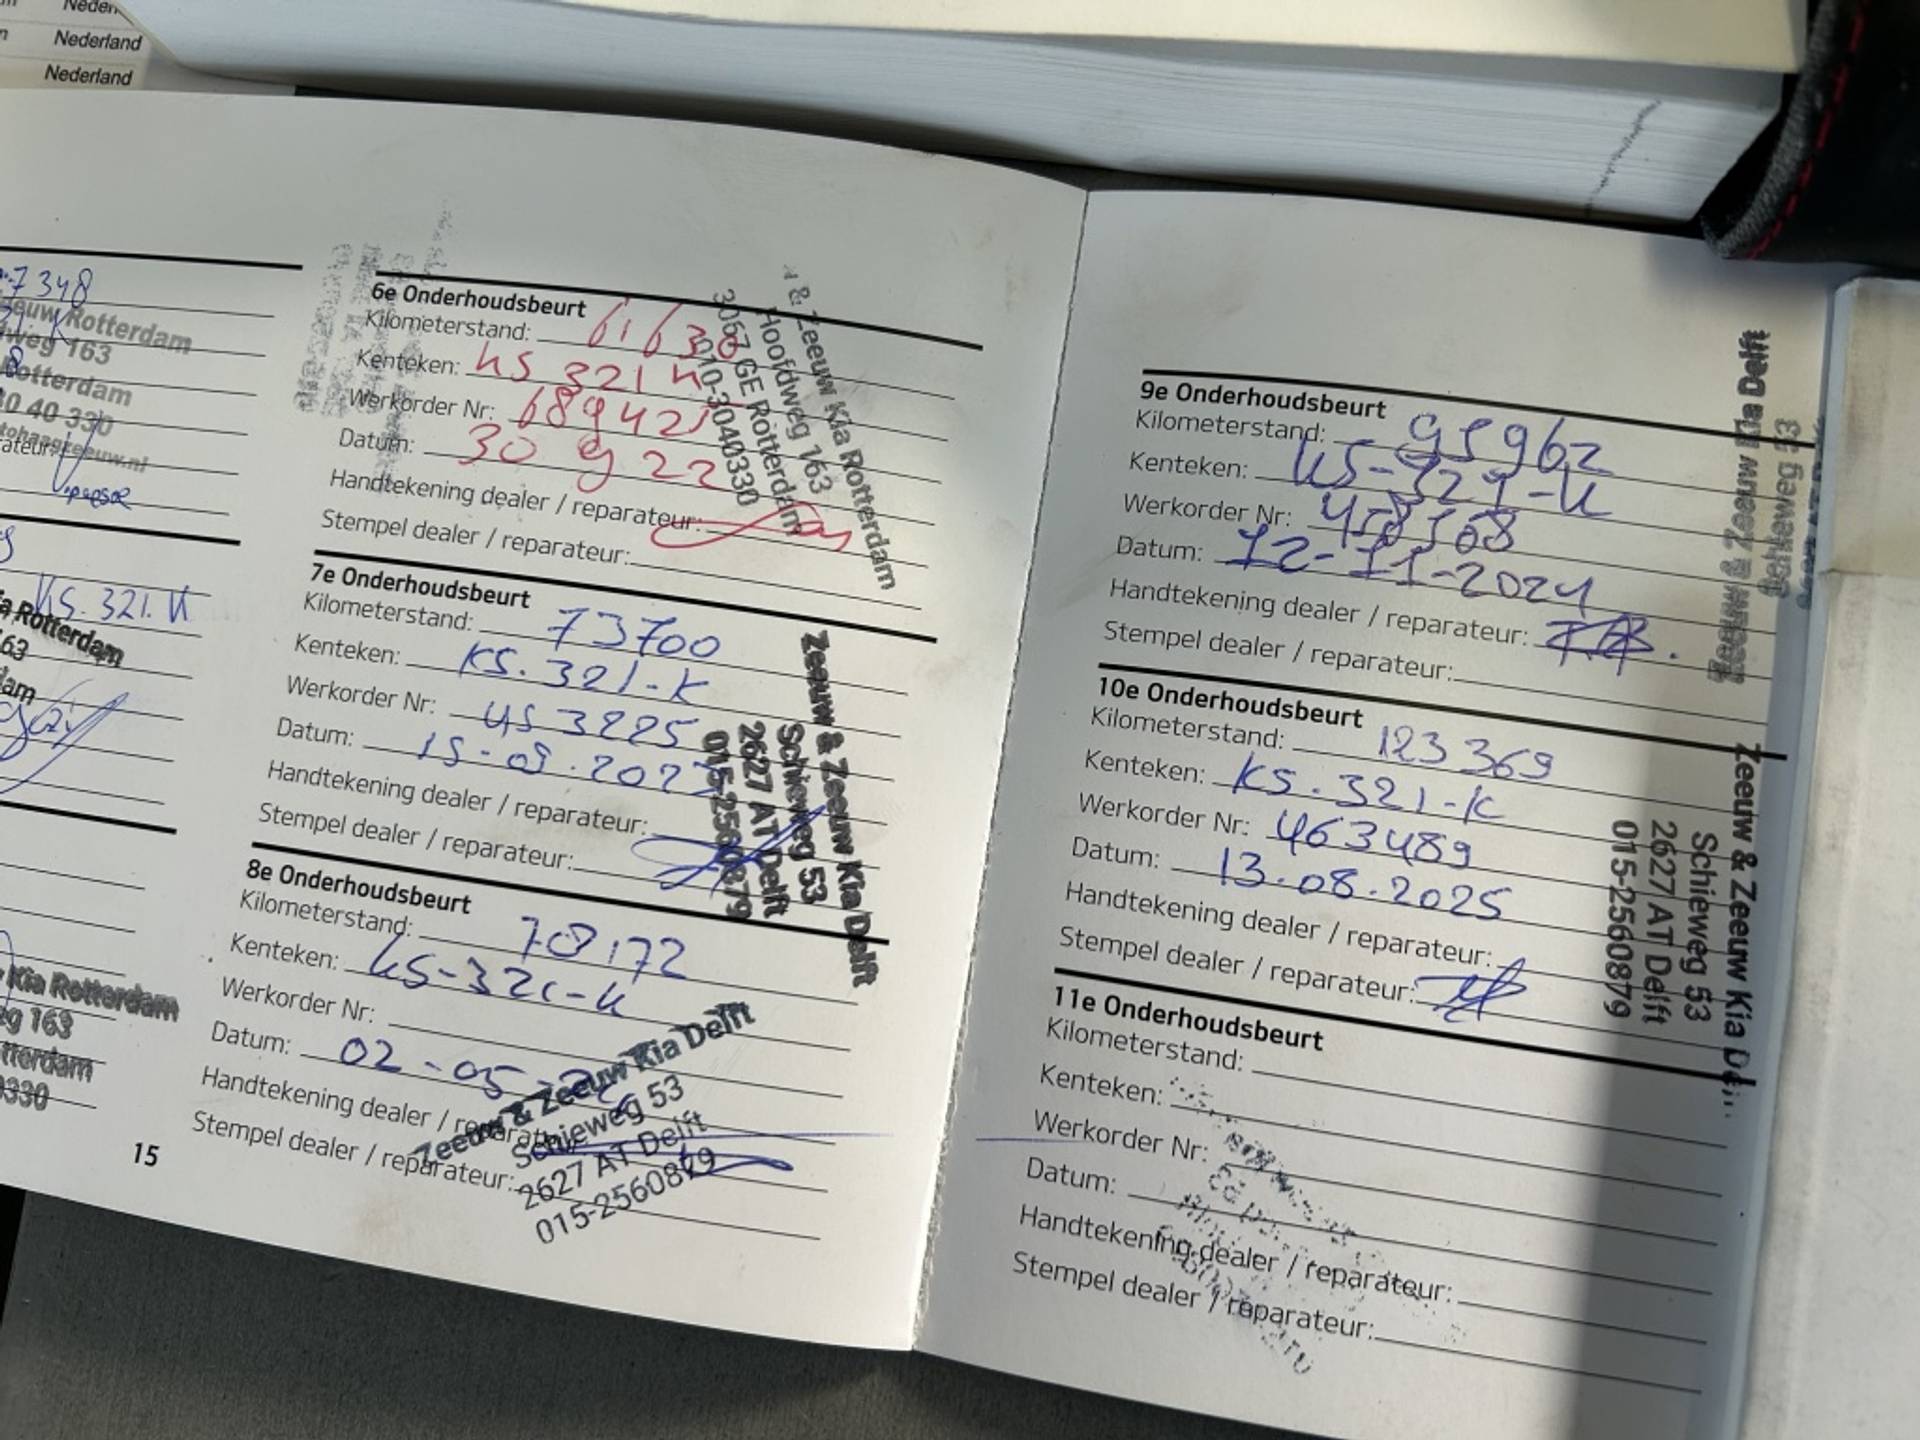 Nederland
Nederland
7348
Rotterdam
weg 163
Rotterdam
10 40 330
KS. 321. K
Rotterdam
Kia Rotterdam
eg 163
tterdam
0330
15
6e Onderhoudsbeurt
Kilometerstand: 61638
Kenteken: KS 321 K
Werkorder Nr: 689421
Datum: 30 9 22
Handtekening dealer / reparateur:
Stempel dealer / reparateur:
& Zeeuw Kia Rotterdam
Hoofdweg 163
3067 GE Rotterdam
010-3040330
7e Onderhoudsbeurt
Kilometerstand: 73700
Kenteken: KS. 321-K
Werkorder Nr: 453225
Datum: 15-09.2023
Handtekening dealer / reparateur:
Stempel dealer / reparateur:
Zeeuw & Zeeuw Kia Delft
Schieweg 53
2627 AT Delft
015-2560879
8e Onderhoudsbeurt
Kilometerstand: 78172
Kenteken: KS-321-K
Werkorder Nr:
Datum: 02-05-24
Handtekening dealer / reparateur:
Stempel dealer / reparateur:
Zeeuw & Zeeuw Kia Delft
Schieweg 53
2627 AT Delft
015-2560879
9e Onderhoudsbeurt
Kilometerstand: 95962
Kenteken: KS-321-K
Werkorder Nr: 458508
Datum: 12-11-2024
Handtekening dealer / reparateur:
Stempel dealer / reparateur:
Zeeuw & Zeeuw Kia Delft
Schieweg 53
10e Onderhoudsbeurt
Kilometerstand: 123369
Kenteken: KS. 321-K
Werkorder Nr: 463489
Datum: 13.08.2025
Handtekening dealer / reparateur:
Stempel dealer / reparateur:
Zeeuw & Zeeuw Kia De
Schieweg 53
2627 AT Delft
015-2560879
11e Onderhoudsbeurt
Kilometerstand:
Kenteken:
Werkorder Nr:
Datum:
Handtekening dealer / reparateur:
Stempel dealer / reparateur: